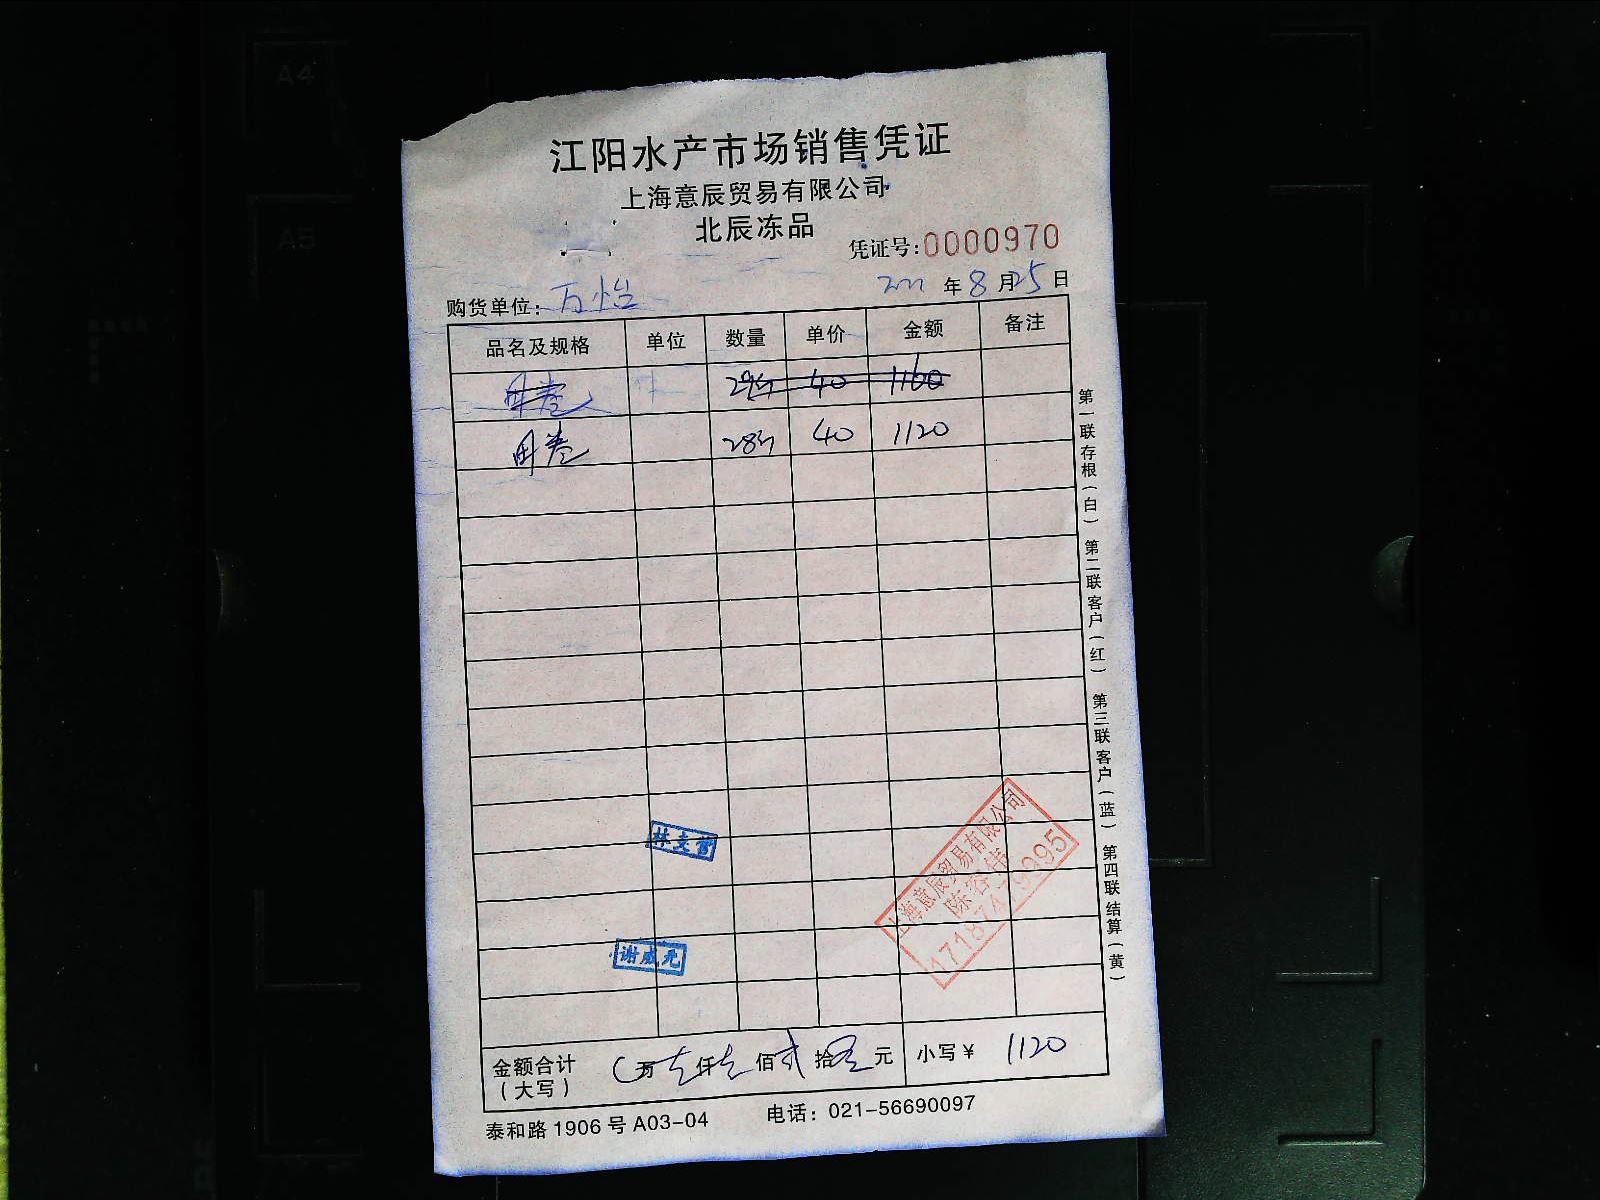 江阳水产市场销售凭证
上海意辰贸易有限公司
北辰冻品
凭证号:0000970
年8月25日
购货单位: 万怡
品名及规格 单位 数量 单价 金额 备注
40 1160
28 40 1120
第一联存根(白) 第二联客户(红) 第三联客户(蓝) 第四联结算(黄)
上海意辰贸易有限公司
谢威元
金额合计 万 壹仟壹佰贰拾零元 小写¥ 1120
(大写)
泰和路1906号A03-04 电话: 021-56690097